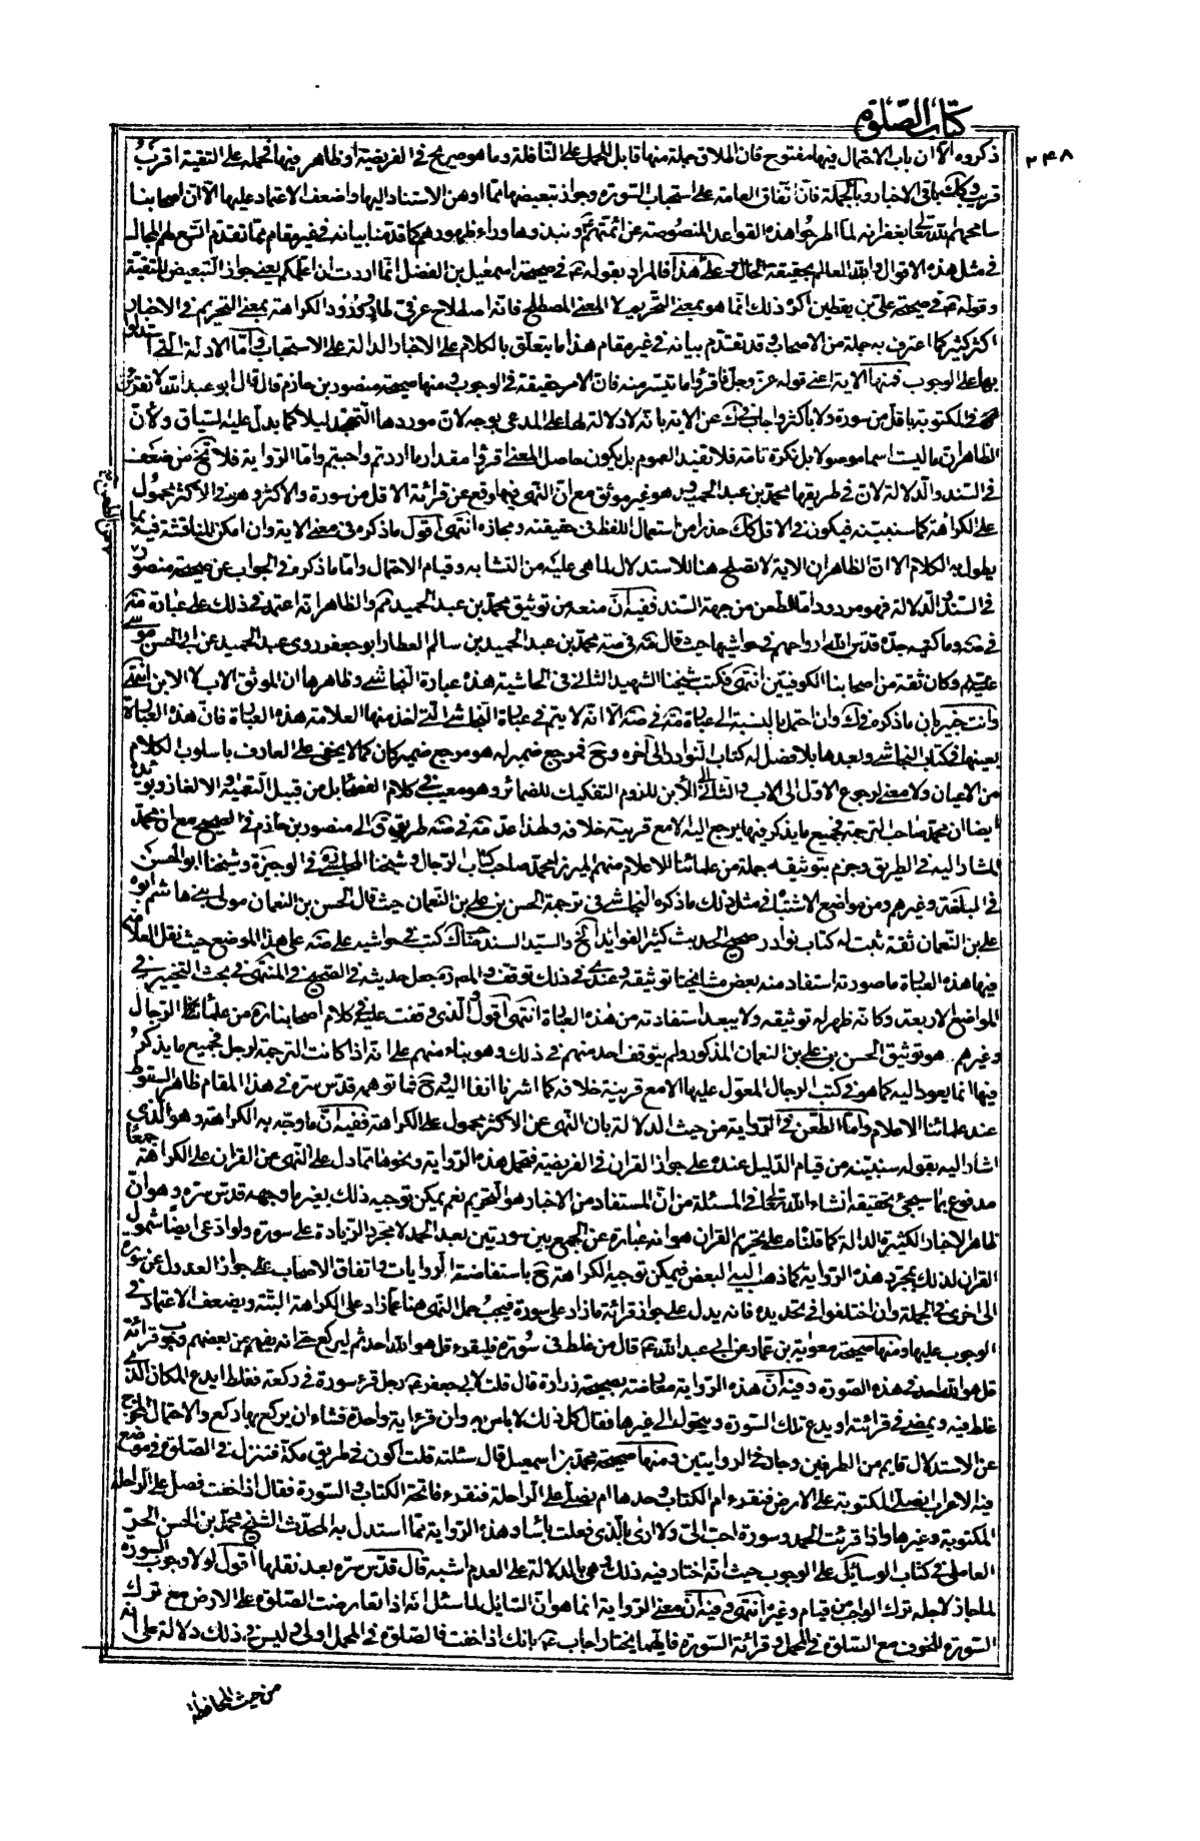 كتاب الصلوة
٢٤٨
ذكروه الا ان باب الاحتمال فيها مفتوح فان اطلاق جملة منها قابل للحمل على النافلة وما هو صريح في الفريضة او ظاهر فيها فحمله على التقية اقرب
قريب وكك باقي الاخبار وبالجملة فان اتفاق العامة على استحباب السورة وجواز تبعيضها مما اوهن الاستناد اليها واضعف الاعتماد عليها الا ان اصحابنا
سامحهم الله تعالى بغفرانه لما اطرحوا هذه القواعد المنصوصة عن ائمتهم ع ونبذوها وراء ظهورهم كما قدمنا بيانه في غير مقام مما تقدم اتسع لهم المجال
في مثل هذه الاقوال والله العالم بحقيقة الحال وعلى هذا فالمراد بقوله ع في صحيحة اسمعيل بن الفضل انما اردت ان اعلمكم يعني جواز التبعيض للتقية
وقوله ع في صحيحة علي بن يقطين اكره ذلك انما هو بمعنى التحريم لا المعنى المصطلح فانه اصطلاح عرفي طار وورود الكراهة بمعنى التحريم في الاخبار
اكثر كثير كما اعترف به جملة من الاصحاب وقد تقدم بيانه في غير مقام هذا ما يتعلق بالكلام على الاخبار الدالة على الاستحباب واما الادلة التي استدلوا
بها على الوجوب فمنها الاية اعني قوله عز وجل فاقرؤا ما تيسر منه فان الامر حقيقة في الوجوب ومنها صحيحة منصور بن حازم قال قال ابو عبد الله لا تقرئن
في المكتوبة باقل من سورة ولا باكثر واجاب في ك عن الاية بانه لا دلالة لها على المدعى بوجه لان موردها التهجد ليلا كما يدل عليه السياق ولان
الظاهر ان ما ليست اسما موصولا بل نكرة تامة فلا تفيد العموم بل يكون حاصل المعنى اقرؤا مقدارا ما اردتم واحببتم واما الرواية فلا تخ من ضعف
في السند والدلالة لان في طريقها محمد بن عبد الحميد وهو غير موثق مع ان النهي فيها وقع عن قرائة الاقل من سورة والاكثر وهو في الاكثر محمول
على الكراهة كما سنبينه فيكون في الاقل كك حذرا من استعمال اللفظ في حقيقته ومجازه انتهى اقول ما ذكره في معنى الاية وان امكن المناقشة فيه بما
يطول به الكلام الا ان الظاهر ان الاية لا تصلح هنا للاستدلال لما هي عليه من التشابه وقيام الاحتمال واما ما ذكره في الجواب عن صحيحة منصور
في السند والدلالة فهو مردود اما الطعن من جهة السند ففيه ان منعه من توثيق محمد بن عبد الحميد ثم والظاهر انه اعتمد في ذلك على عبارة صه
في وما كتبه جده قدس الله ارواحهم في حواشيها حيث قال صه في محمد بن عبد الحميد بن سالم العطار ابو جعفر روى عبد الحميد عن ابي الحسن موسى
عليه م وكان ثقة من اصحابنا الكوفيين انتهى فكتب شيخنا الشهيد الثاني في الحاشية هذه عبارة النجاشي وظاهرها ان الموثق الاب لا الابن انتهى
وانت خبير بان ما ذكره في ك وان احتمل بالنسبة الى عبارة صه الا انه لا يتم في عبارة النجاشي التي اخذ منها العلامة هذه العبارة فان هذه العبارة
بعينها في كتاب النجاشي وبعدها بلا فصل له كتاب النوادر الى اخره وح فمرجع ضمير له هو مرجع ضمير كان كما لا يخفى على العارف باسلوب الكلام
من الاعيان ولا معنى لرجوع الاول الى الاب والثاني الى الابن للزوم التفكيك للضمائر وهو معيب في كلام الفصحاء بل من قبيل التعمية والالغاز ويؤيده
ايضا ان محمدا صاحب الترجمة فجميع ما يذكر فيها يرجع اليه الا مع قرينة خلافه ولهذا عد صه في صه طريق ق الى منصور بن حازم في الصحيح مع ان محمدا
المشار اليه في الطريق وجزم بتوثيقه جملة من علمائنا الاعلام منهم الميرزا محمد صاحب كتاب الرجال وشيخنا المجلسي في الوجيزة وشيخنا ابو الحسن
في البلغة وغيرهم ومن مواضع الاشتباه في مثل ذلك ما ذكره النجاشي في ترجمة الحسن بن علي بن النعمان حيث قال الحسن بن النعمان مولى بني هاشم ابوه
علي بن النعمان ثقة ثبت له كتاب نوادر صحيح الحديث كثير الفوايد الخ والسيد السند صاحب ك كتب في حواشيه على صه على هذا الموضع حيث نقل العلامة
فيها هذه العبارة ما صورته استفاد منه بعض مشايخنا توثيقه وعندي في ذلك توقف والمص ره جعل حديثه في الصحيح في المنتهى في بحث التخيير في
المواضع الاربعة وكانه ظهر له توثيقه ولا يبعد استفادته من هذه العبارة انتهى اقول والذي وقفت عليه في كلام اصحابنا ره من علماء الرجال
وغيرهم هو توثيق الحسن بن علي بن النعمان المذكور ولم يتوقف احد منهم في ذلك وهو بناء منهم على انه اذا كانت الترجمة لرجل فجميع ما يذكر
فيها انما يعود اليه كما هو في كتب الرجال المعول عليها الا مع قرينة خلافه كما اشرنا انفا اليه وح فما توهمه قدس سره في هذا المقام ظاهر السقوط
عند علمائنا الاعلام واما الطعن في الرواية من حيث الدلالة بان النهي عن الاكثر محمول على الكراهة ففيه ان ما وجه به الكراهة وهو الذي
اشار اليه بقوله سنبينه من قيام الدليل عنده على جواز القران في الفريضة فتحمل هذه الرواية ونحوها مما دل على النهي عن القران على الكراهة جمعا
مدفوع بما سيجئ تحقيقه انشاء الله تعالى في المسئلة من ان المستفاد من الاخبار هو التحريم نعم يمكن توجيه ذلك بغير ما وجهه قدس سره وهو ان
ظاهر الاخبار الكثيرة الدالة كما قلناه على تحريم القران هو انه عبارة عن الجمع بين سورتين بعد الحمد لا مجرد الزيادة على سورة ولو ادعى ايضا شمول
القران لذلك بمجرد هذه الرواية كما ذهب اليه البعض فيمكن توجيه الكراهة ح باستفاضة الروايات واتفاق الاصحاب على جواز العدول عن سورة
الى اخرى في الجملة وان اختلفوا في تحديده فانه يدل على جواز قرائة ما زاد على سورة فيجب حمل النهي هنا عما زاد على الكراهة البتة ويضعف الاعتماد في
الوجوب عليها ومنها صحيحة معوية بن عمار عن ابي عبد الله ع قال من غلط في سورة فليقرء قل هو الله احد ثم ليركع حتى انه يفهم عن بعضهم وجوب قرائة
قل هو الله احد في هذه الصورة وفيه ان هذه الرواية معارضة بصحيحة زرارة قال قلت لابي جعفر ع رجل قرء سورة في ركعة فغلط ايدع المكان الذي
غلط فيه ويمضي في قرائته او يدع تلك السورة ويتحول الى غيرها فقال كل ذلك لا باس به وان قرء اية واحدة فشاء ان يركع بها ركع والاحتمال المخرج
عن الاستدلال قايم من الطرفين وجار في الروايتين ومنها صحيحة محمد بن اسمعيل قال سئلته قلت اكون في طريق مكة فننزل في الصلوة في موضع
فيه الاعراب انصلي المكتوبة على الارض فنقرء ام الكتاب وحدها ام نصلي على الراحلة فنقرء فاتحة الكتاب والسورة فقال اذا خفت فصل على الراحلة
المكتوبة وغيرها واذا قرئت الحمد وسورة احب الى ولا ارى بالذي فعلت باسا وهذه الرواية مما استدل به المحدث الشيخ محمد بن الحسن الحر
العاملي في كتاب الوسايل على الوجوب حيث انه اختار فيه ذلك وهي بالدلالة على العدم اشبه قال قدس سره بعد نقلها اقول لولا وجوب السورة
لما جاز لاجله ترك الواجب من قيام وغيره انتهى وفيه ان معنى الرواية انما هو ان السايل لما سئل انه اذا تعارضت الصلوة على الارض مع ترك
السورة للخوف مع الصلوة في المحمل وقرائة السورة فايهما يختار اجاب ع بانك اذا خفت فالصلوة في المحمل اولى وليس في ذلك دلالة على انه
من حيث المحافظة